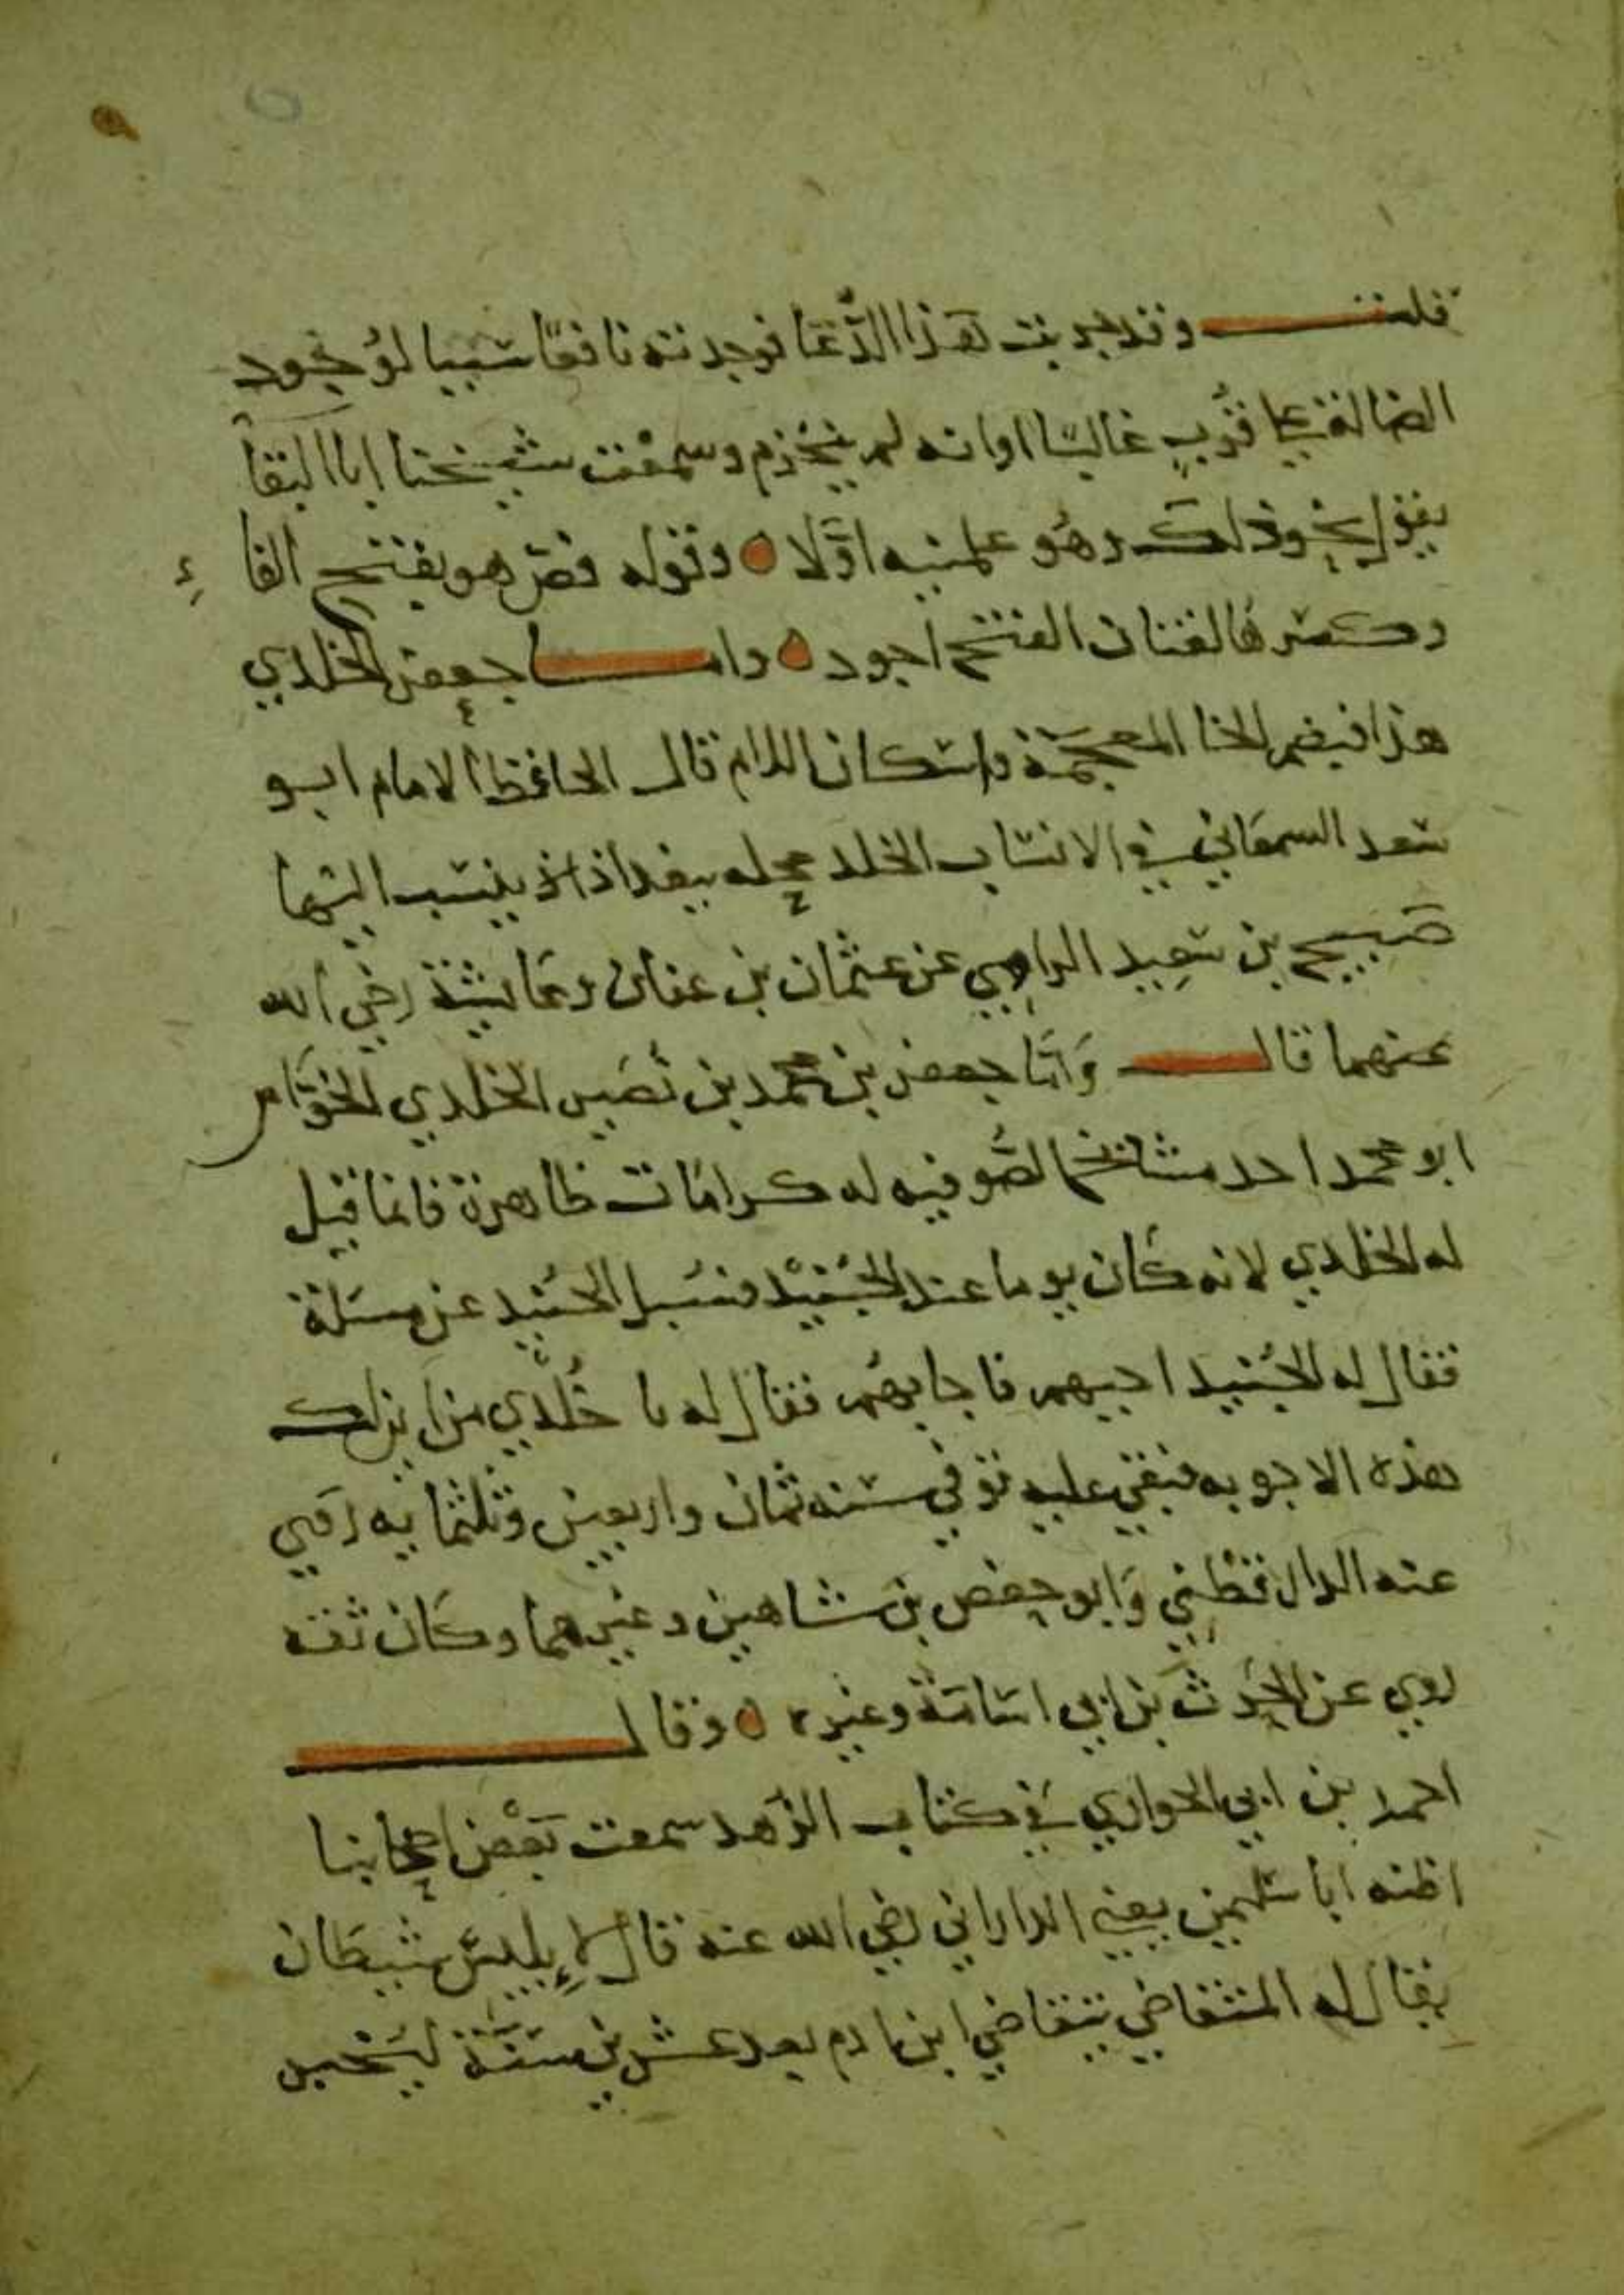 قلت وقد جربت هذا الدعا فوجدته نافعا سببا لوجود
الضالة عن قرب غالبا اوانه لم ينخرم وسمعت شيخنا ابا البقا
يقول نحو ذلك وهو علمنيه اولا ه وقوله فص هو بفتح الفاء
وكسرها لغتان الفتح اجود ه واما جعفر الخلدي
هذا فبضم الخا المعجمة واسكان اللام قال الحافظ الامام ابو
سعد السمعاني في الانساب الخلد محله ببغداذ ينسب اليها
صبيح بن سعيد الراسبي عن عثمان بن عفان وعايشة رضي الله
عنهما قال وَاَمّا جعفر بن محمد بن نُصَير الخلدي الخوَّاص
ابو محمد احد مشايخ الصُّوفيه له كرامات ظاهرة فانما قيل
له الخلدي لانه كان يوما عند الجُنَيْد فسُيل الجُنيد عن مسَلة
فقال له الجُنيد اجبهم فاجابهُم فقال له يا خُلْدي من اين لك
هذه الاجوبه فبقي عليه توفي سنه ثمان واربعين وثلثمايه روي
عنه الدارقطْني وَابو حفص بن شاهين وغيرهما وكان ثقه
روي عن الحرث بن ابي اسامة وغيره ه وقال
احمد بن ابي الحواري في كتاب الزهد سمعت بَعْض اصحابنا
اظنه ابا سليمن يعني الداراني رضي الله عنه قال لإبليس شيطان
يقال له المتقاضي يتقاضي ابن ادم بعد عشرين سَنَة ليخبر